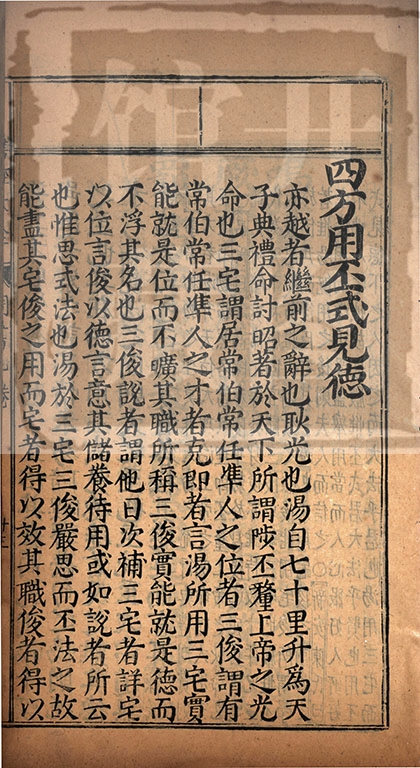 四方用丕式見德
亦越者繼前之辭也耿光也湯自七十里升爲天
子典禮命討昭著於天下所謂陟丕釐上帝之光
命也三宅謂居常伯常任準人之位者三俊謂有
常伯常任凖人之才者克即者言湯所用三宅實
能就是位而不曠其職所稱三俊實能就是德而
不浮其名也三俊說者謂他日次補三宅者詳宅
以位言俊以德言意其儲養待用或如說者所云
也惟思式法也湯於三宅三俊嚴思而丕法之故
能盡其宅俊之用而宅者得以效其職俊者得以